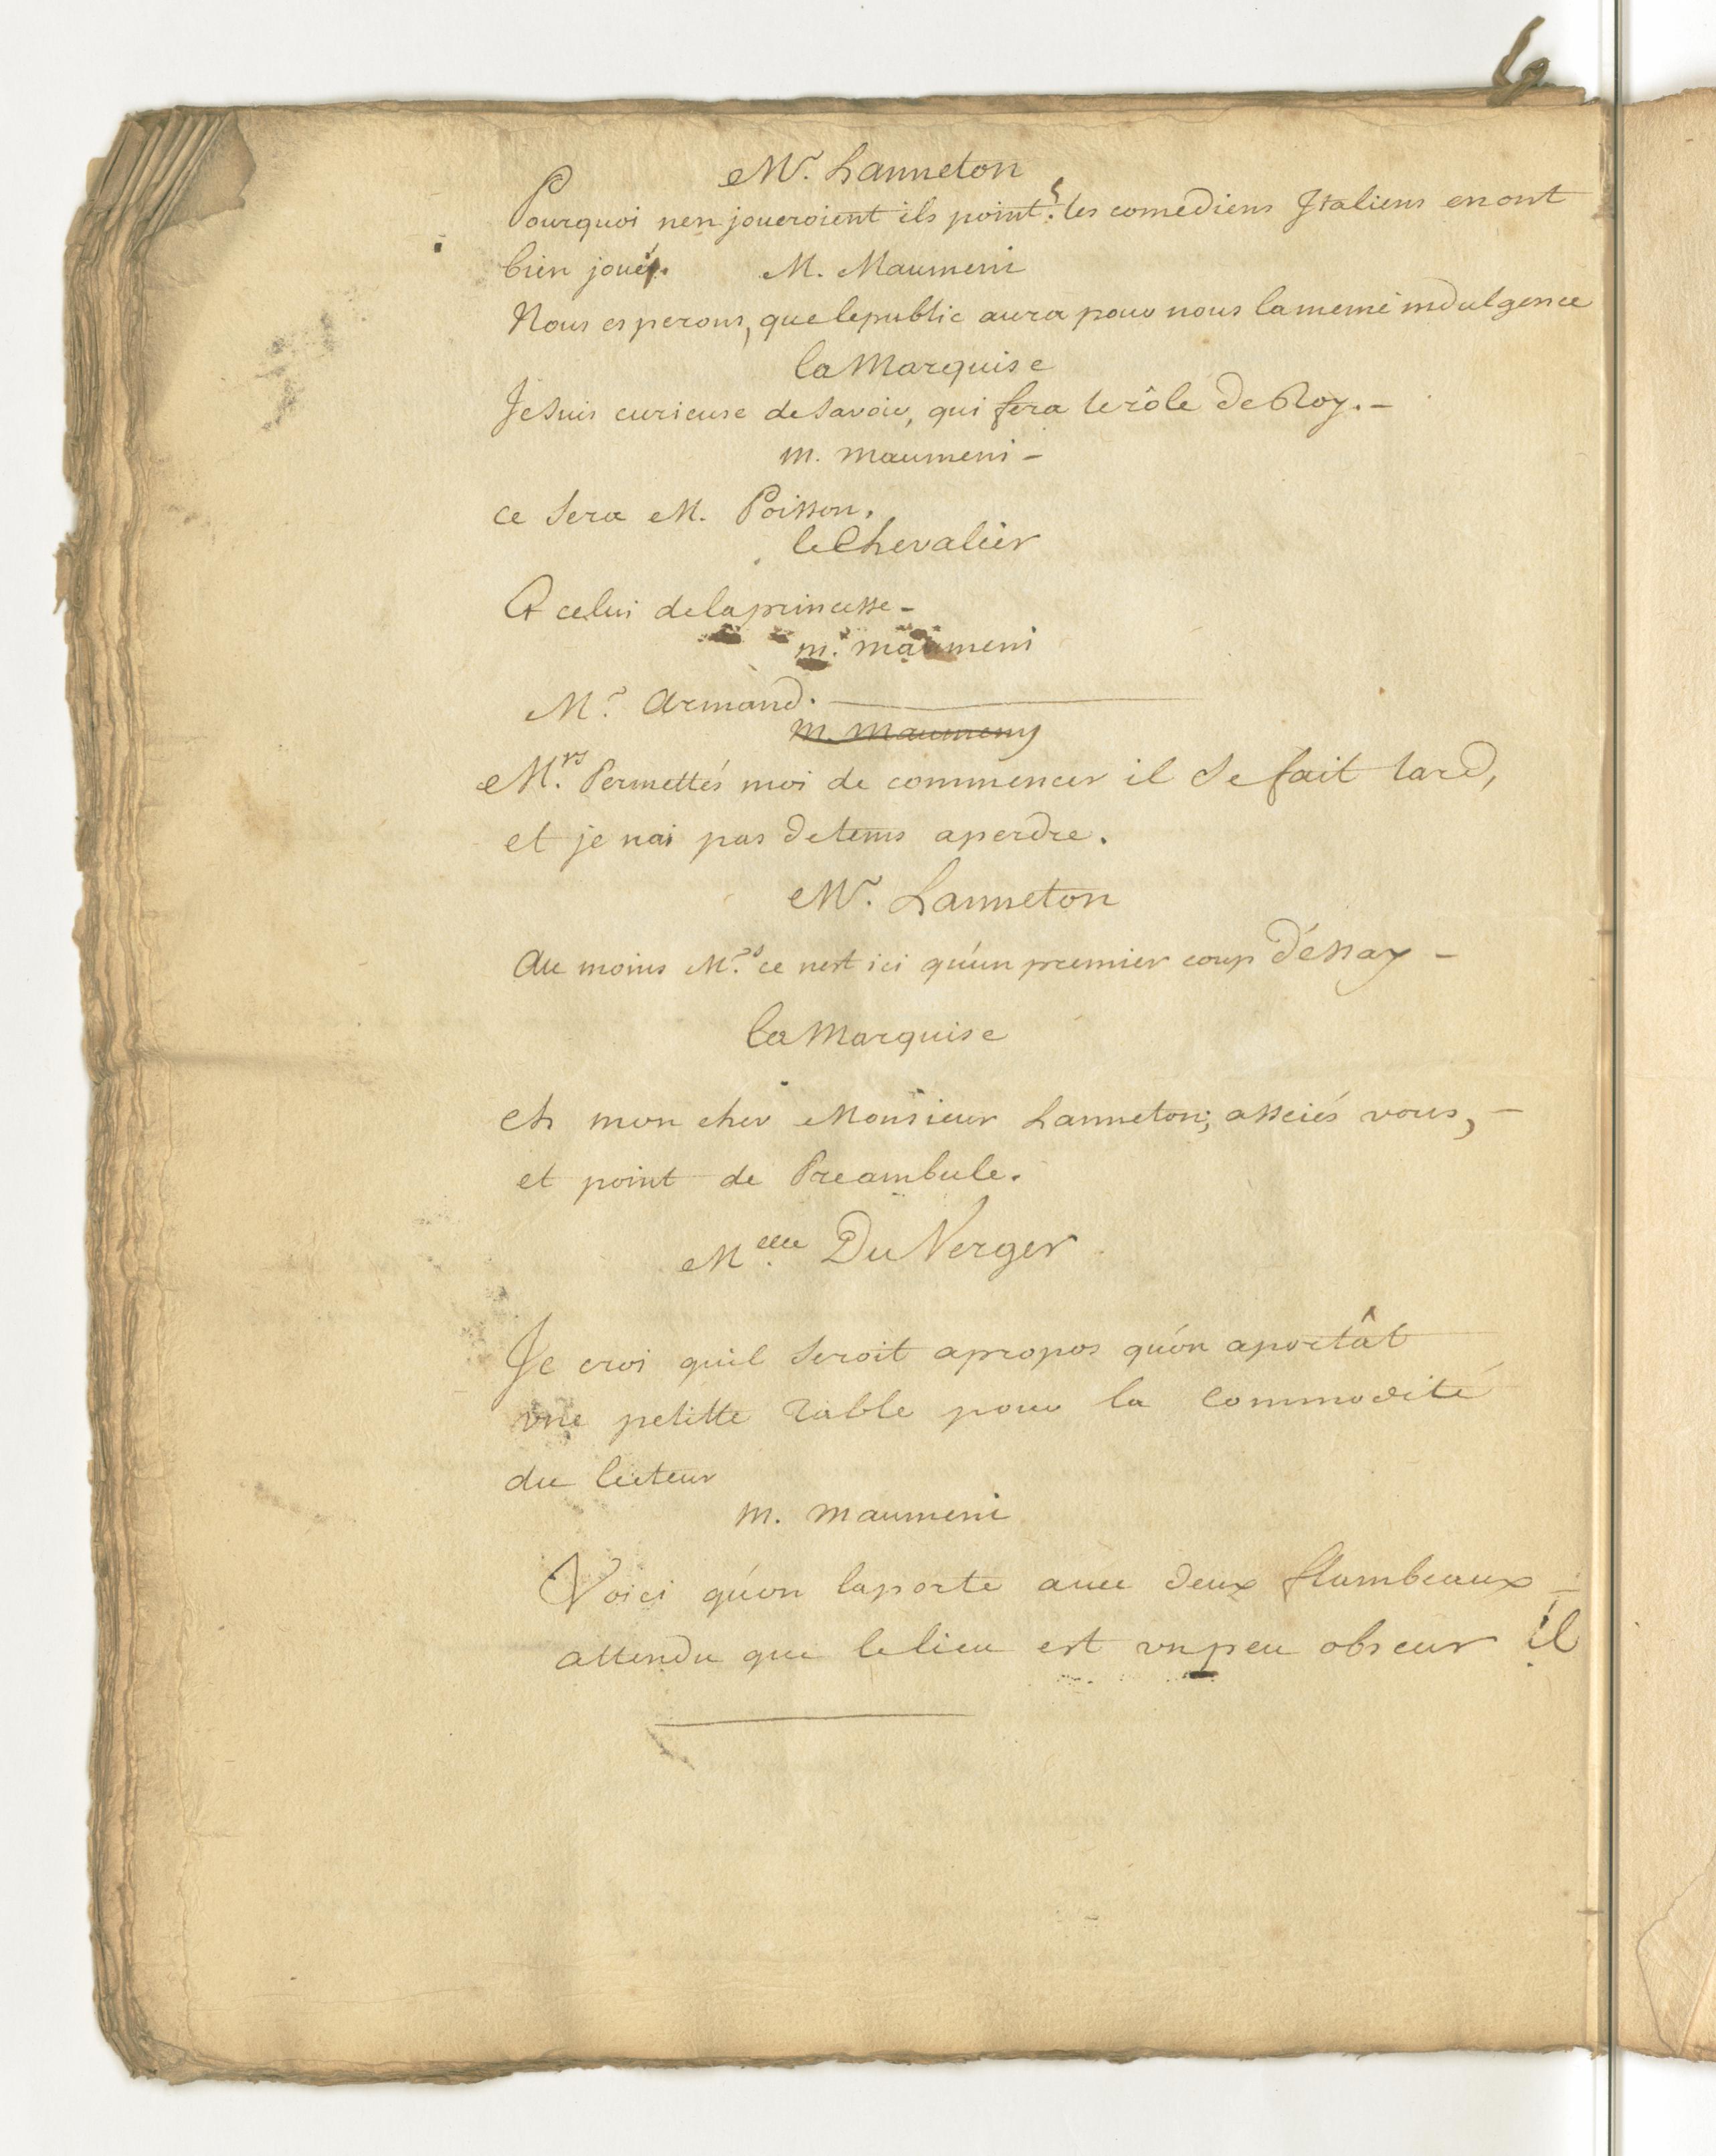 Mr. Lanneton
Pourquoi nen joueroient ils point? les comediens Italiens en ont
bien joué. M. Maumeni
Nous esperons, que le public aura pour nous la meme indulgence
la Marquise
Je suis curieuse de savoir, qui fera le rôle de Roy. -
m. maumeni -
ce sera M. Poisson.
le Chevalier
Et celui de la princesse -
m. maumeni
Mr. Armand.
m. maumeny
Mrs. Permettés moi de commencer il se fait tard,
et je nai pas de tems a perdre.
Mr. Lanneton
Au moins Mrs. ce nest ici qu'un premier coup d'éssay -
la Marquise
eh mon cher Monsieur Lanneton; asseiés vous, -
et point de Preambule.
Melle. Du Verger
Je croi quil seroit apropos qu'on aportât
vne petitte table pour la commodité
du lecteur
m. maumeni
Voici qu'on laporte avec deux flambeaux -
attendu que le lieu est vn peu obscur il